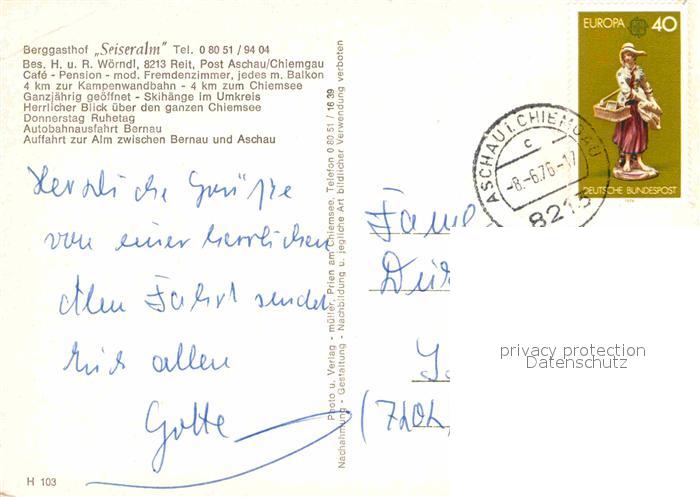 Berggasthof „Seiseralm" Tel. 0 80 51 / 94 04
Bes. H. u. R. Wörndl, 8213 Reit, Post Aschau/Chiemgau
Café - Pension - mod. Fremdenzimmer, jedes m. Balkon
4 km zur Kampenwandbahn - 4 km zum Chiemsee
Ganzjährig geöffnet - Skihänge im Umkreis
Herrlicher Blick über den ganzen Chiemsee
Donnerstag Ruhetag
Autobahnausfahrt Bernau
Auffahrt zur Alm zwischen Bernau und Aschau
Herzliche Grüße
von einer herrlichen
Fahrt sendet
Euch allen
H 103
Photo u. Verlag - müller, Prien am Chiemsee, Telefon 0 80 51 / 16 39
Nachahmung - Gestaltung - Nachbildung u. jegliche Art bildlicher Verwendung verboten
EUROPA 40
DEUTSCHE BUNDESPOST
1976
ASCHAU I. CHIEMGAU
c
-8.-6.76-17
8213
Fam
privacy protection
Datenschutz